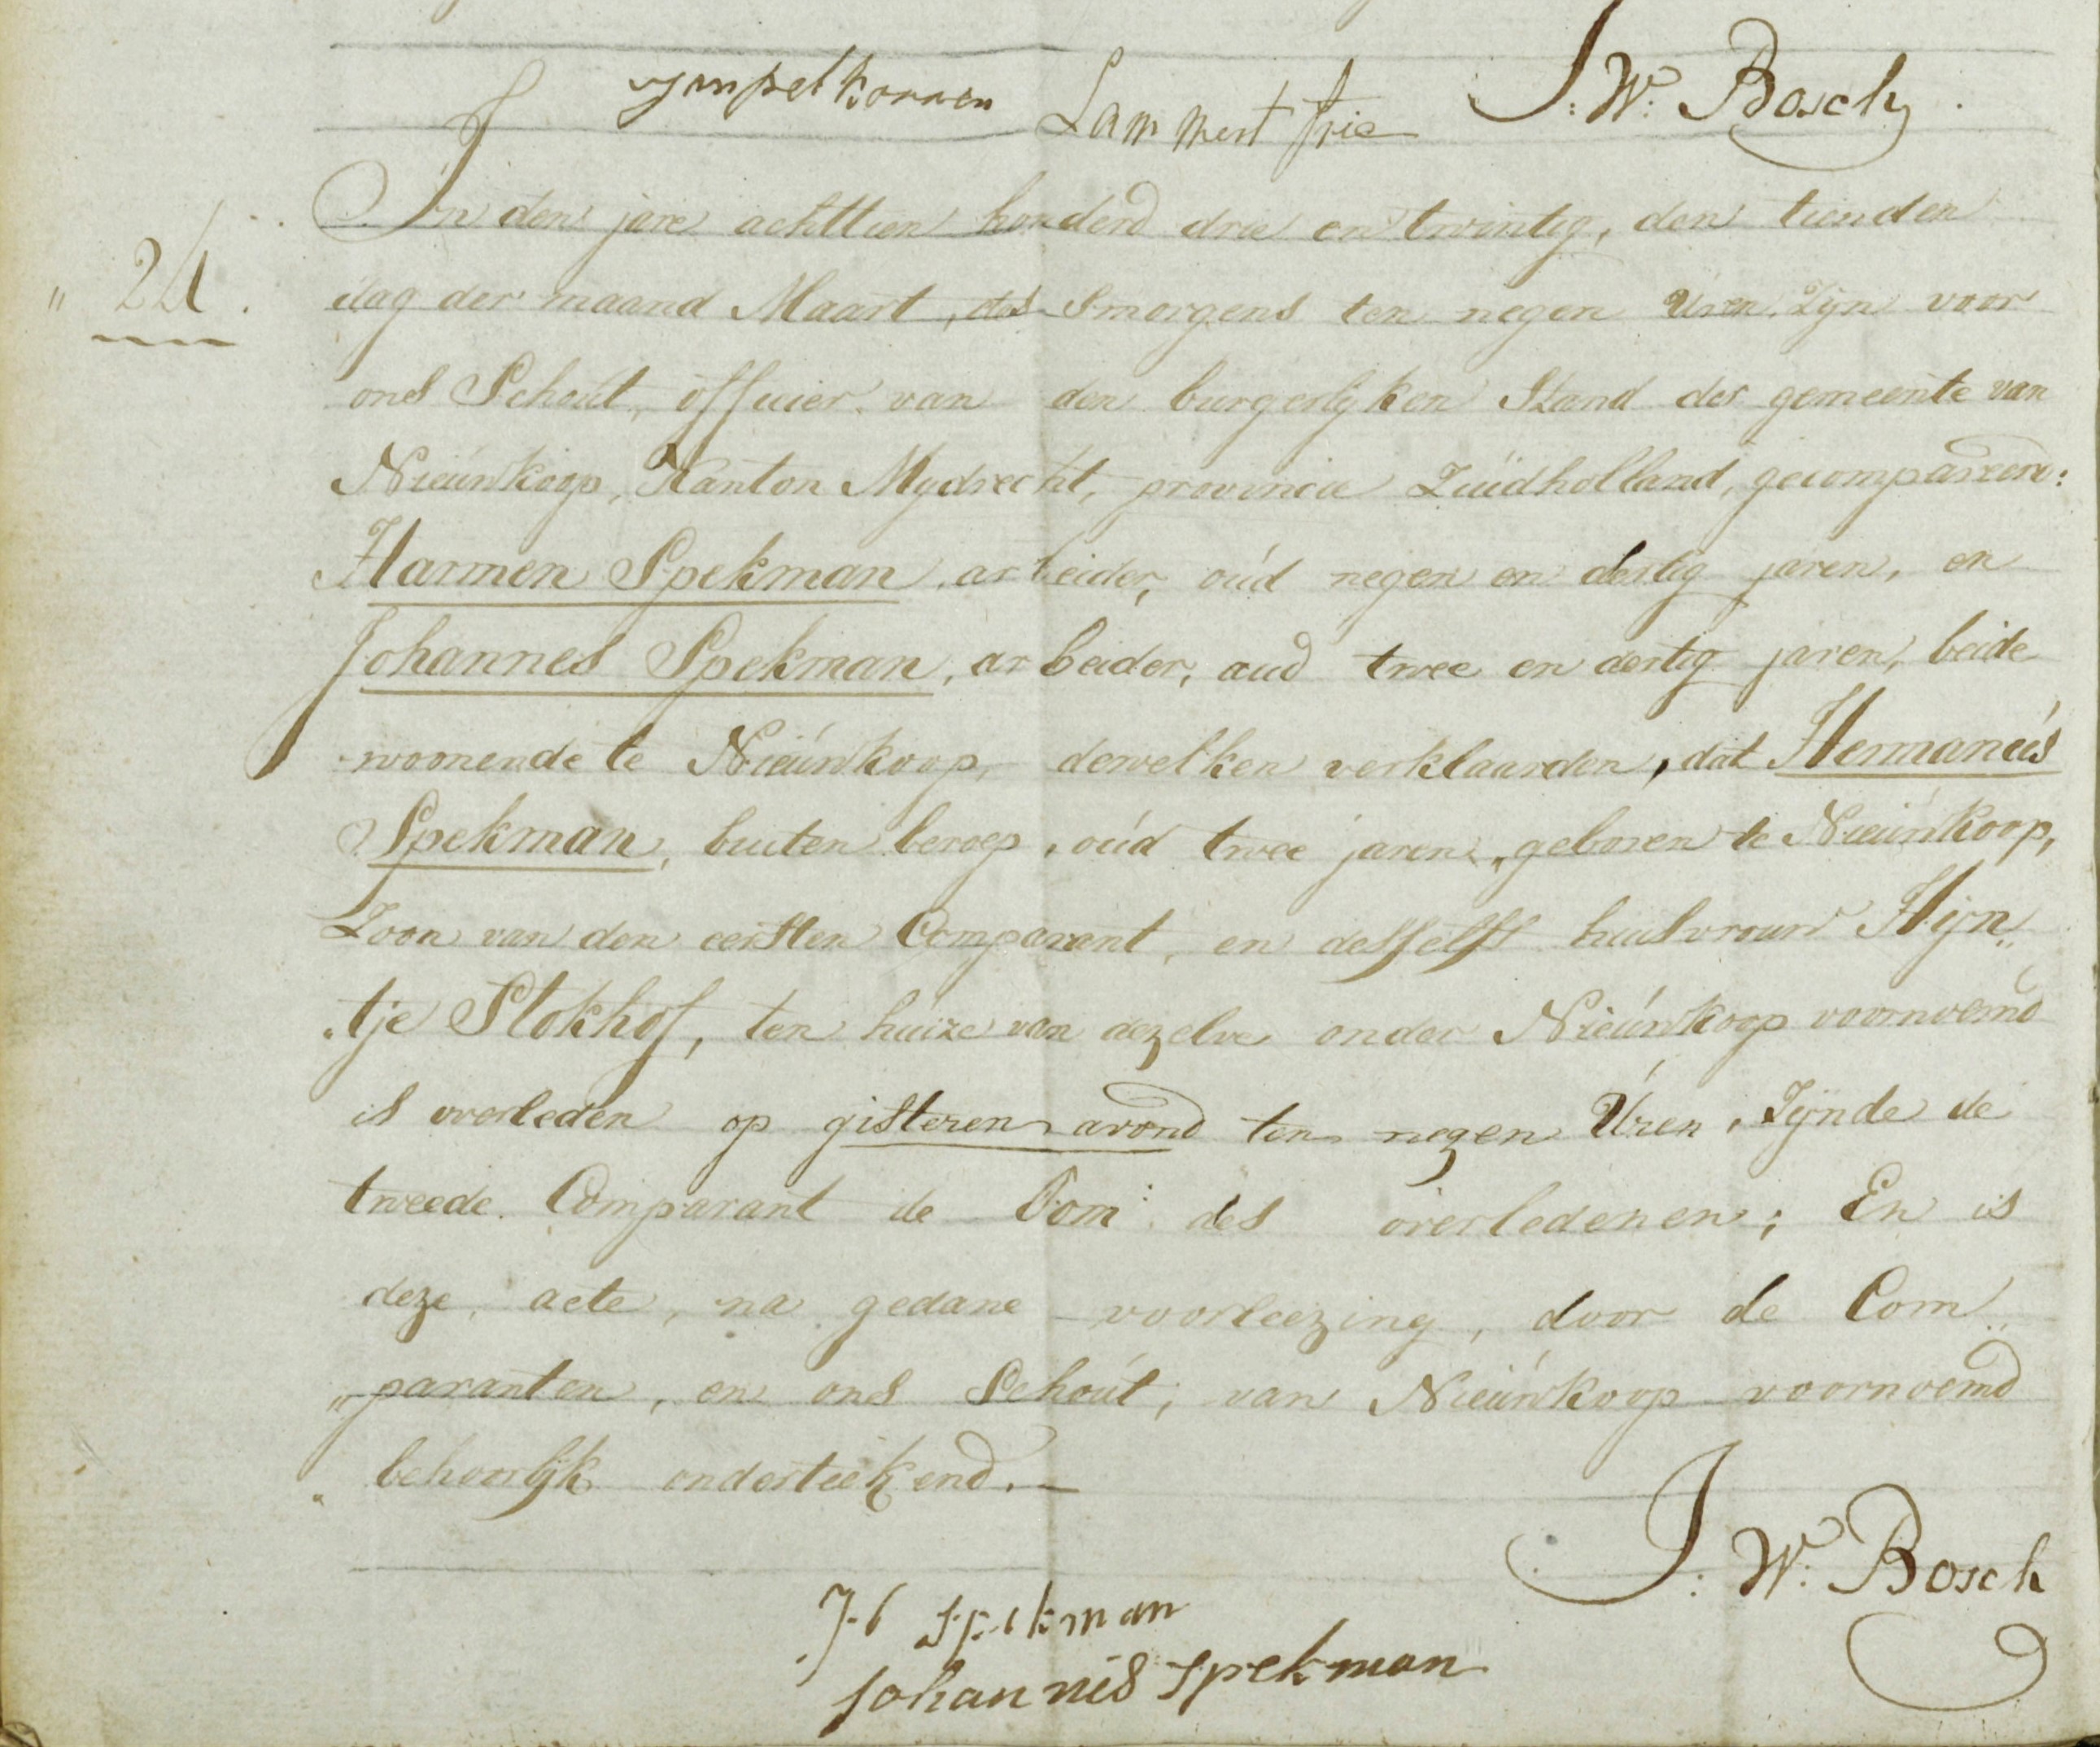 Lammert Frie
J: W: Bosch
„ 24.
In den jare achttien honderd drie en twintig, den tienden
dag der maand Maart, des Smorgens ten negen Uren, Zijn voor
ons Schout, officier van den burgerlijken Stand der gemeente van
Nieuwkoop, Kanton Mydrecht, provincie Zuidholland, gecompareerd:
Harmen Spekman, arbeider, oud negen en dertig jaren, en
Johannes Spekman, arbeider, oud twee en dertig jaren, beide
woonende te Nieuwkoop, dewelken verklaarden, dat Hermanus
Spekman, buiten beroep, oud twee jaren, geboren te Nieuwkoop,
Zoon van den eersten Comparant, en desselfs huisvrouw Hijn„
„tje Stokhof, ten huize van dezelve onder Nieuwkoop voornoemd
is overleden op gisteren avond ten negen Uren, Zijnde de
tweede Comparant de Oom des overledenen; En is
deze acte, na gedane voorleezing, door de Com„
„paranten, en ons Schout, van Nieuwkoop voornoemd
behoorlijk onderteekend.—
J: W: Bosch
H Spekman
Johannes Spekman